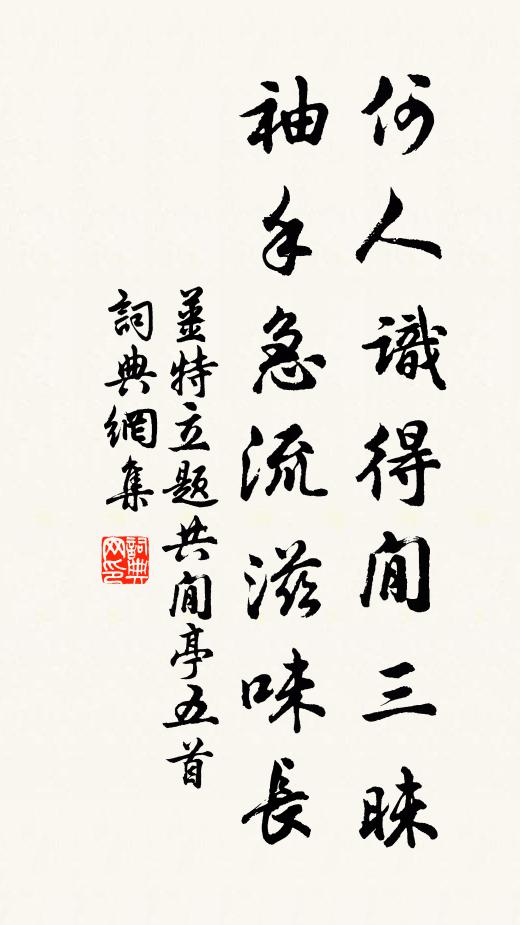 何人識得閒三昧
袖手急流滋味長
薑特立題共閒亭五首
詞典網集
詞典
网印